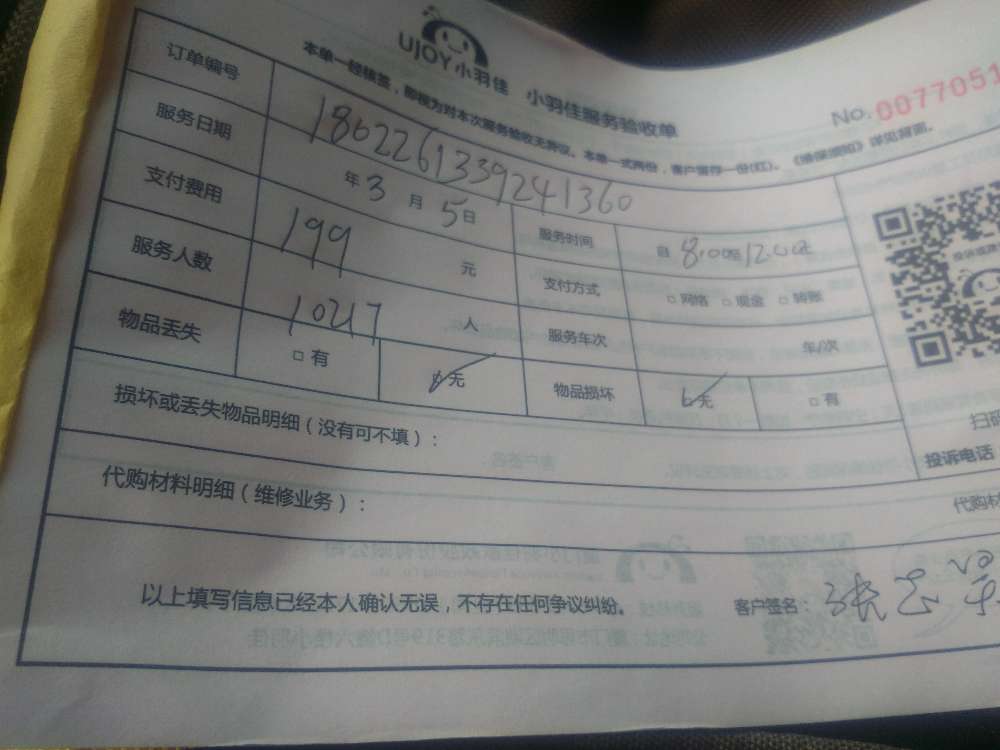 UJOY小羽佳 小羽佳服务验收单
No. 0077051
本单一经核签，即视为对本次服务验收无异议。本单一式两份，客户留存一份(红)。《维保须知》详见背面。
订单编号 1802261339241360
服务日期 年 3 月 5 日 服务时间 自 8:00至12:00
支付费用 199 元 支付方式 □网络 □现金 □转账
服务人数 10217 人 服务车次 年/次
物品丢失 □有 □无 物品损坏 □无 □有
扫码
损坏或丢失物品明细（没有可不填）：
投诉电话
代购材料明细（维修业务）：
代购材
以上填写信息已经本人确认无误，不存在任何争议纠纷。 客户签名：张